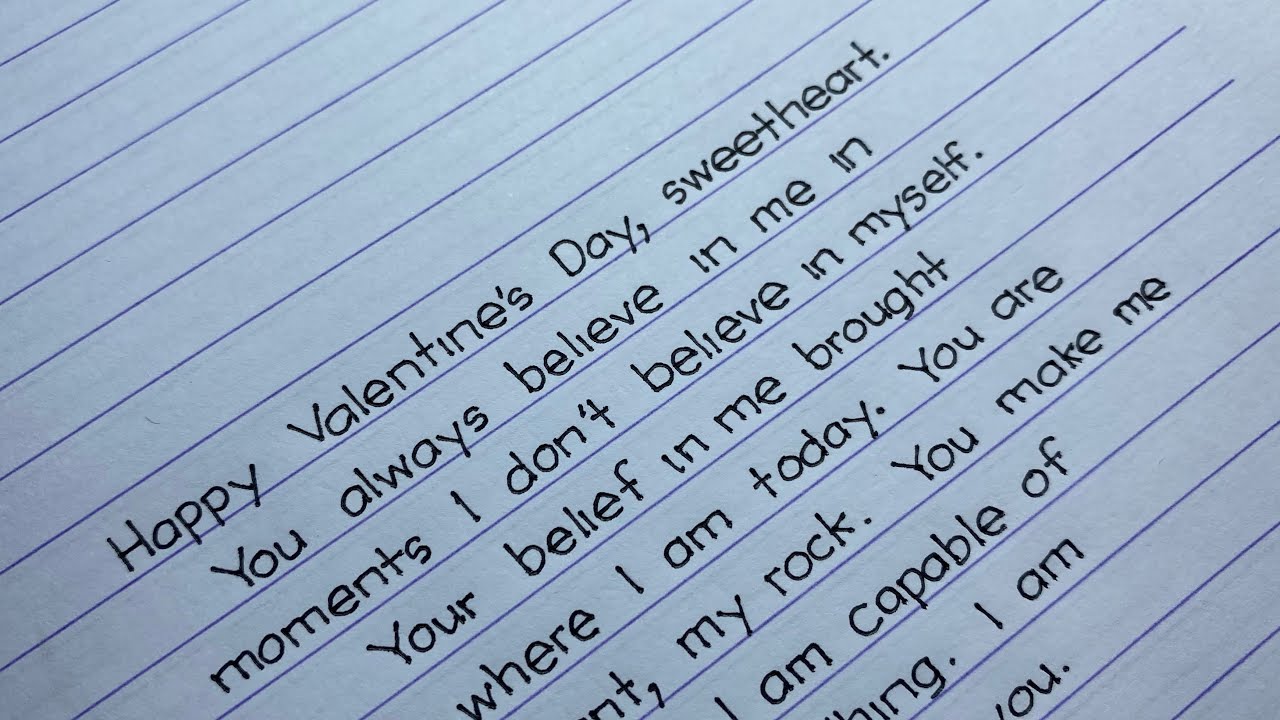 Happy Valentine's Day, sweetheart.
You always believe in me in
moments I don't believe in myself.
Your belief in me brought
where I am today. You are
my rock. You make me
I am capable of
I am
you.